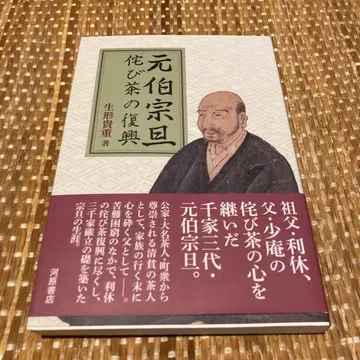 元伯宗旦
侘び茶の復興
生形貴重 著
祖父・利休、
父・少庵の
侘び茶の心を
継いだ
千家三代・
元伯宗旦。
公家・大名茶人・町衆から
尊崇される清貧の茶人
として、家族の行く末に
心を砕く父として――。
苦難困窮のなかで、利休
の侘び茶復興に尽くし、
三千家確立の礎を築いた
宗旦の生涯。
河原書店